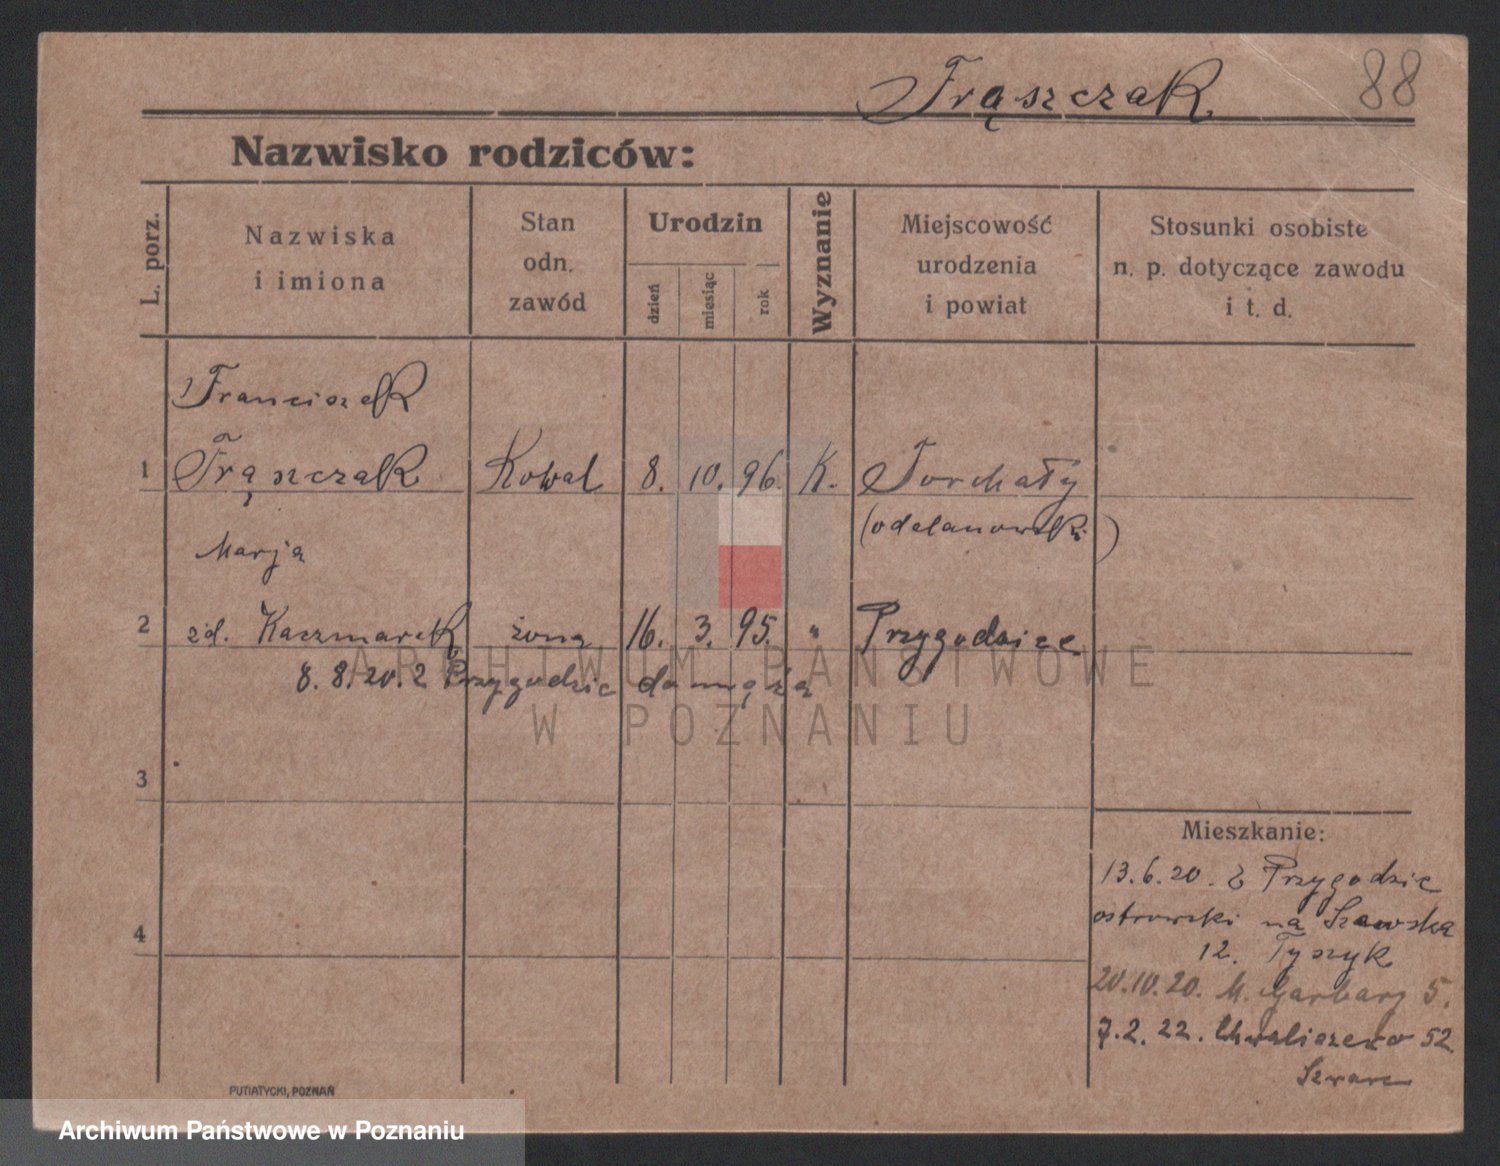 Frąszczak 88
Nazwisko rodziców:
L. porz.
Nazwiska
i imiona
Stan
odn.
zawód
Urodzin
dzień
miesiąc
rok
Wyznanie
Miejscowość
urodzenia
i powiat
Stosunki osobiste
n. p. dotyczące zawodu
i t. d.
Franciszek
1 Frąszczak Kowal 8. 10. 96. K. Torchały
(odolanowski)
Marja
2 zd. Kaczmarek żona 16. 3. 95. " Przygodzice
8. 8. 20. z Przygodzic do męża
3
4
Mieszkanie:
13.6.20. z Przygodzic
ostrowski na Szewska
12. Tyszyk
20.10.20. M. Garbary 5.
7.2.22. Chwaliszewo 52
PUTIATYCKI, POZNAŃ
ARCHIWUM PAŃSTWOWE
W POZNANIU
Archiwum Państwowe w Poznaniu